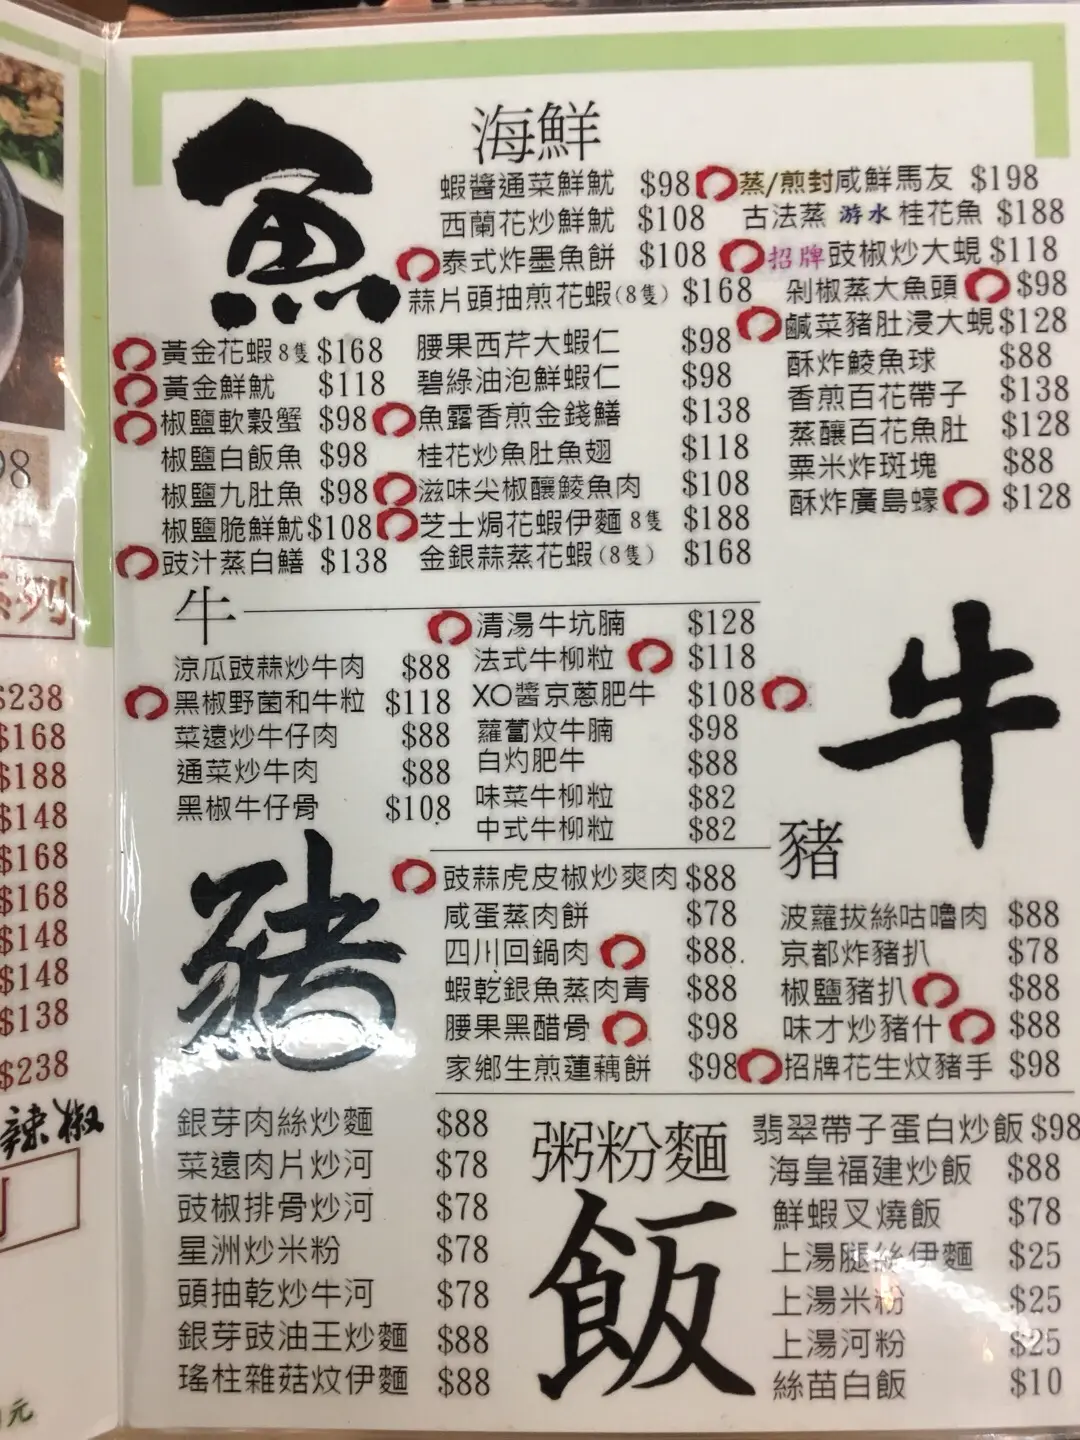 魚
海鮮
蝦醬通菜鮮魷 $98
西蘭花炒鮮魷 $108
泰式炸墨魚餅 $108
蒜片頭抽煎花蝦(8隻) $168
蒸/煎封咸鮮馬友 $198
古法蒸游水桂花魚 $188
招牌豉椒炒大蜆 $118
剁椒蒸大魚頭 $98
鹹菜豬肚浸大蜆 $128
酥炸鯪魚球 $88
香煎百花帶子 $138
蒸釀百花魚肚 $128
粟米炸斑塊 $88
酥炸廣島蠔 $128
黃金花蝦8隻 $168
黃金鮮魷 $118
椒鹽軟穀蟹 $98
椒鹽白飯魚 $98
椒鹽九肚魚 $98
椒鹽脆鮮魷 $108
豉汁蒸白鱔 $138
腰果西芹大蝦仁 $98
碧綠油泡鮮蝦仁 $98
魚露香煎金錢鱔 $138
桂花炒魚肚魚翅 $118
滋味尖椒釀鯪魚肉 $108
芝士焗花蝦伊麵8隻 $188
金銀蒜蒸花蝦(8隻) $168
牛
涼瓜豉蒜炒牛肉 $88
黑椒野菌和牛粒 $118
菜遠炒牛仔肉 $88
通菜炒牛肉 $88
黑椒牛仔骨 $108
清湯牛坑腩 $128
法式牛柳粒 $118
XO醬京蔥肥牛 $108
蘿蔔炆牛腩 $98
白灼肥牛 $88
味菜牛柳粒 $82
中式牛柳粒 $82
牛
豬
豬
豉蒜虎皮椒炒爽肉 $88
咸蛋蒸肉餅 $78
四川回鍋肉 $88
蝦乾銀魚蒸肉青 $88
腰果黑醋骨 $98
家鄉生煎蓮藕餅 $98
波蘿拔絲咕嚕肉 $88
京都炸豬扒 $78
椒鹽豬扒 $88
味才炒豬什 $88
招牌花生炆豬手 $98
銀芽肉絲炒麵 $88
菜遠肉片炒河 $78
豉椒排骨炒河 $78
星洲炒米粉 $78
頭抽乾炒牛河 $78
銀芽豉油王炒麵 $88
瑤柱雜菇炆伊麵 $88
粥粉麵
飯
翡翠帶子蛋白炒飯 $98
海皇福建炒飯 $88
鮮蝦叉燒飯 $78
上湯腿絲伊麵 $25
上湯米粉 $25
上湯河粉 $25
絲苗白飯 $10
98
系列
$238
$168
$188
$148
$168
$168
$148
$148
$138
$238
辣椒
元